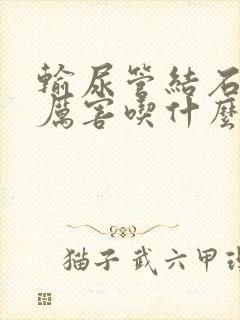 輸尿管結石
厲害喫什麼
猫子武六甲